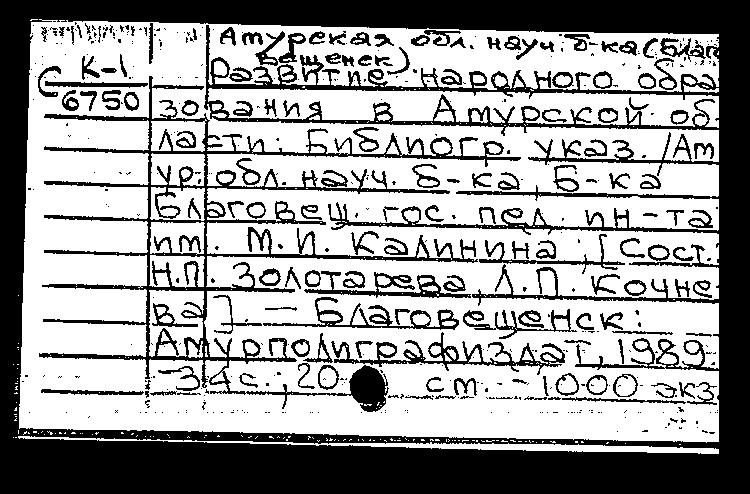 Амурская обл. науч. б-ка (Благо
вещенск)
К-1
6750
Развитие народного обра
зования в Амурской об-
ласти: Библиогр. указ. / Ам
ур. обл. науч. б-ка, Б-ка
Благовещ. гос. пед. ин-та
им. М.И. Калинина; [Сост.:
Н.П. Золотарева, Л.П. Кочне-
ва]. — Благовещенск:
Амурполиграфиздат, 1989.
-34с.; 20 ст. - 1000 экз.